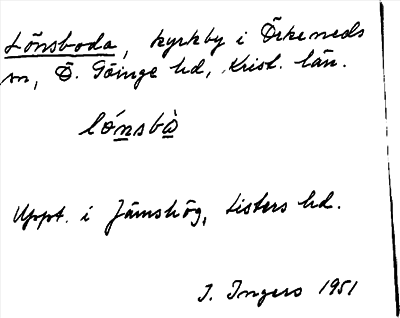 Lönsboda, kyrkby i Örkeneds
sn, Ö. Göinge hd, Krist. län.
lónsbà
Uppt. i Jämshög, Listers hd.
I. Ingers 1951